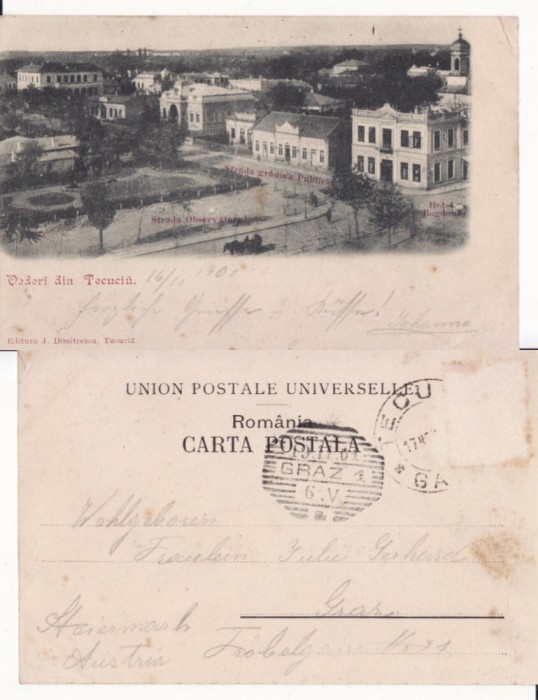 Strada grădina Publică
Strada Observătorul
Hotel
Bogdan
Vederi din Tecuciŭ. 16/II 1901
Herzliche Grüsse u. Küsse!
Johanna
Editura J. Dimitrescu, Tecuciŭ.
UNION POSTALE UNIVERSELLE
România
CARTA POSTALA
TECU
17
* GA
19.II.01
GRAZ 1
6.V
a
Wohlgeboren
Fräulein Julie Gerhard
Graz
Steiermark
Austria
Fröbelgasse No 21